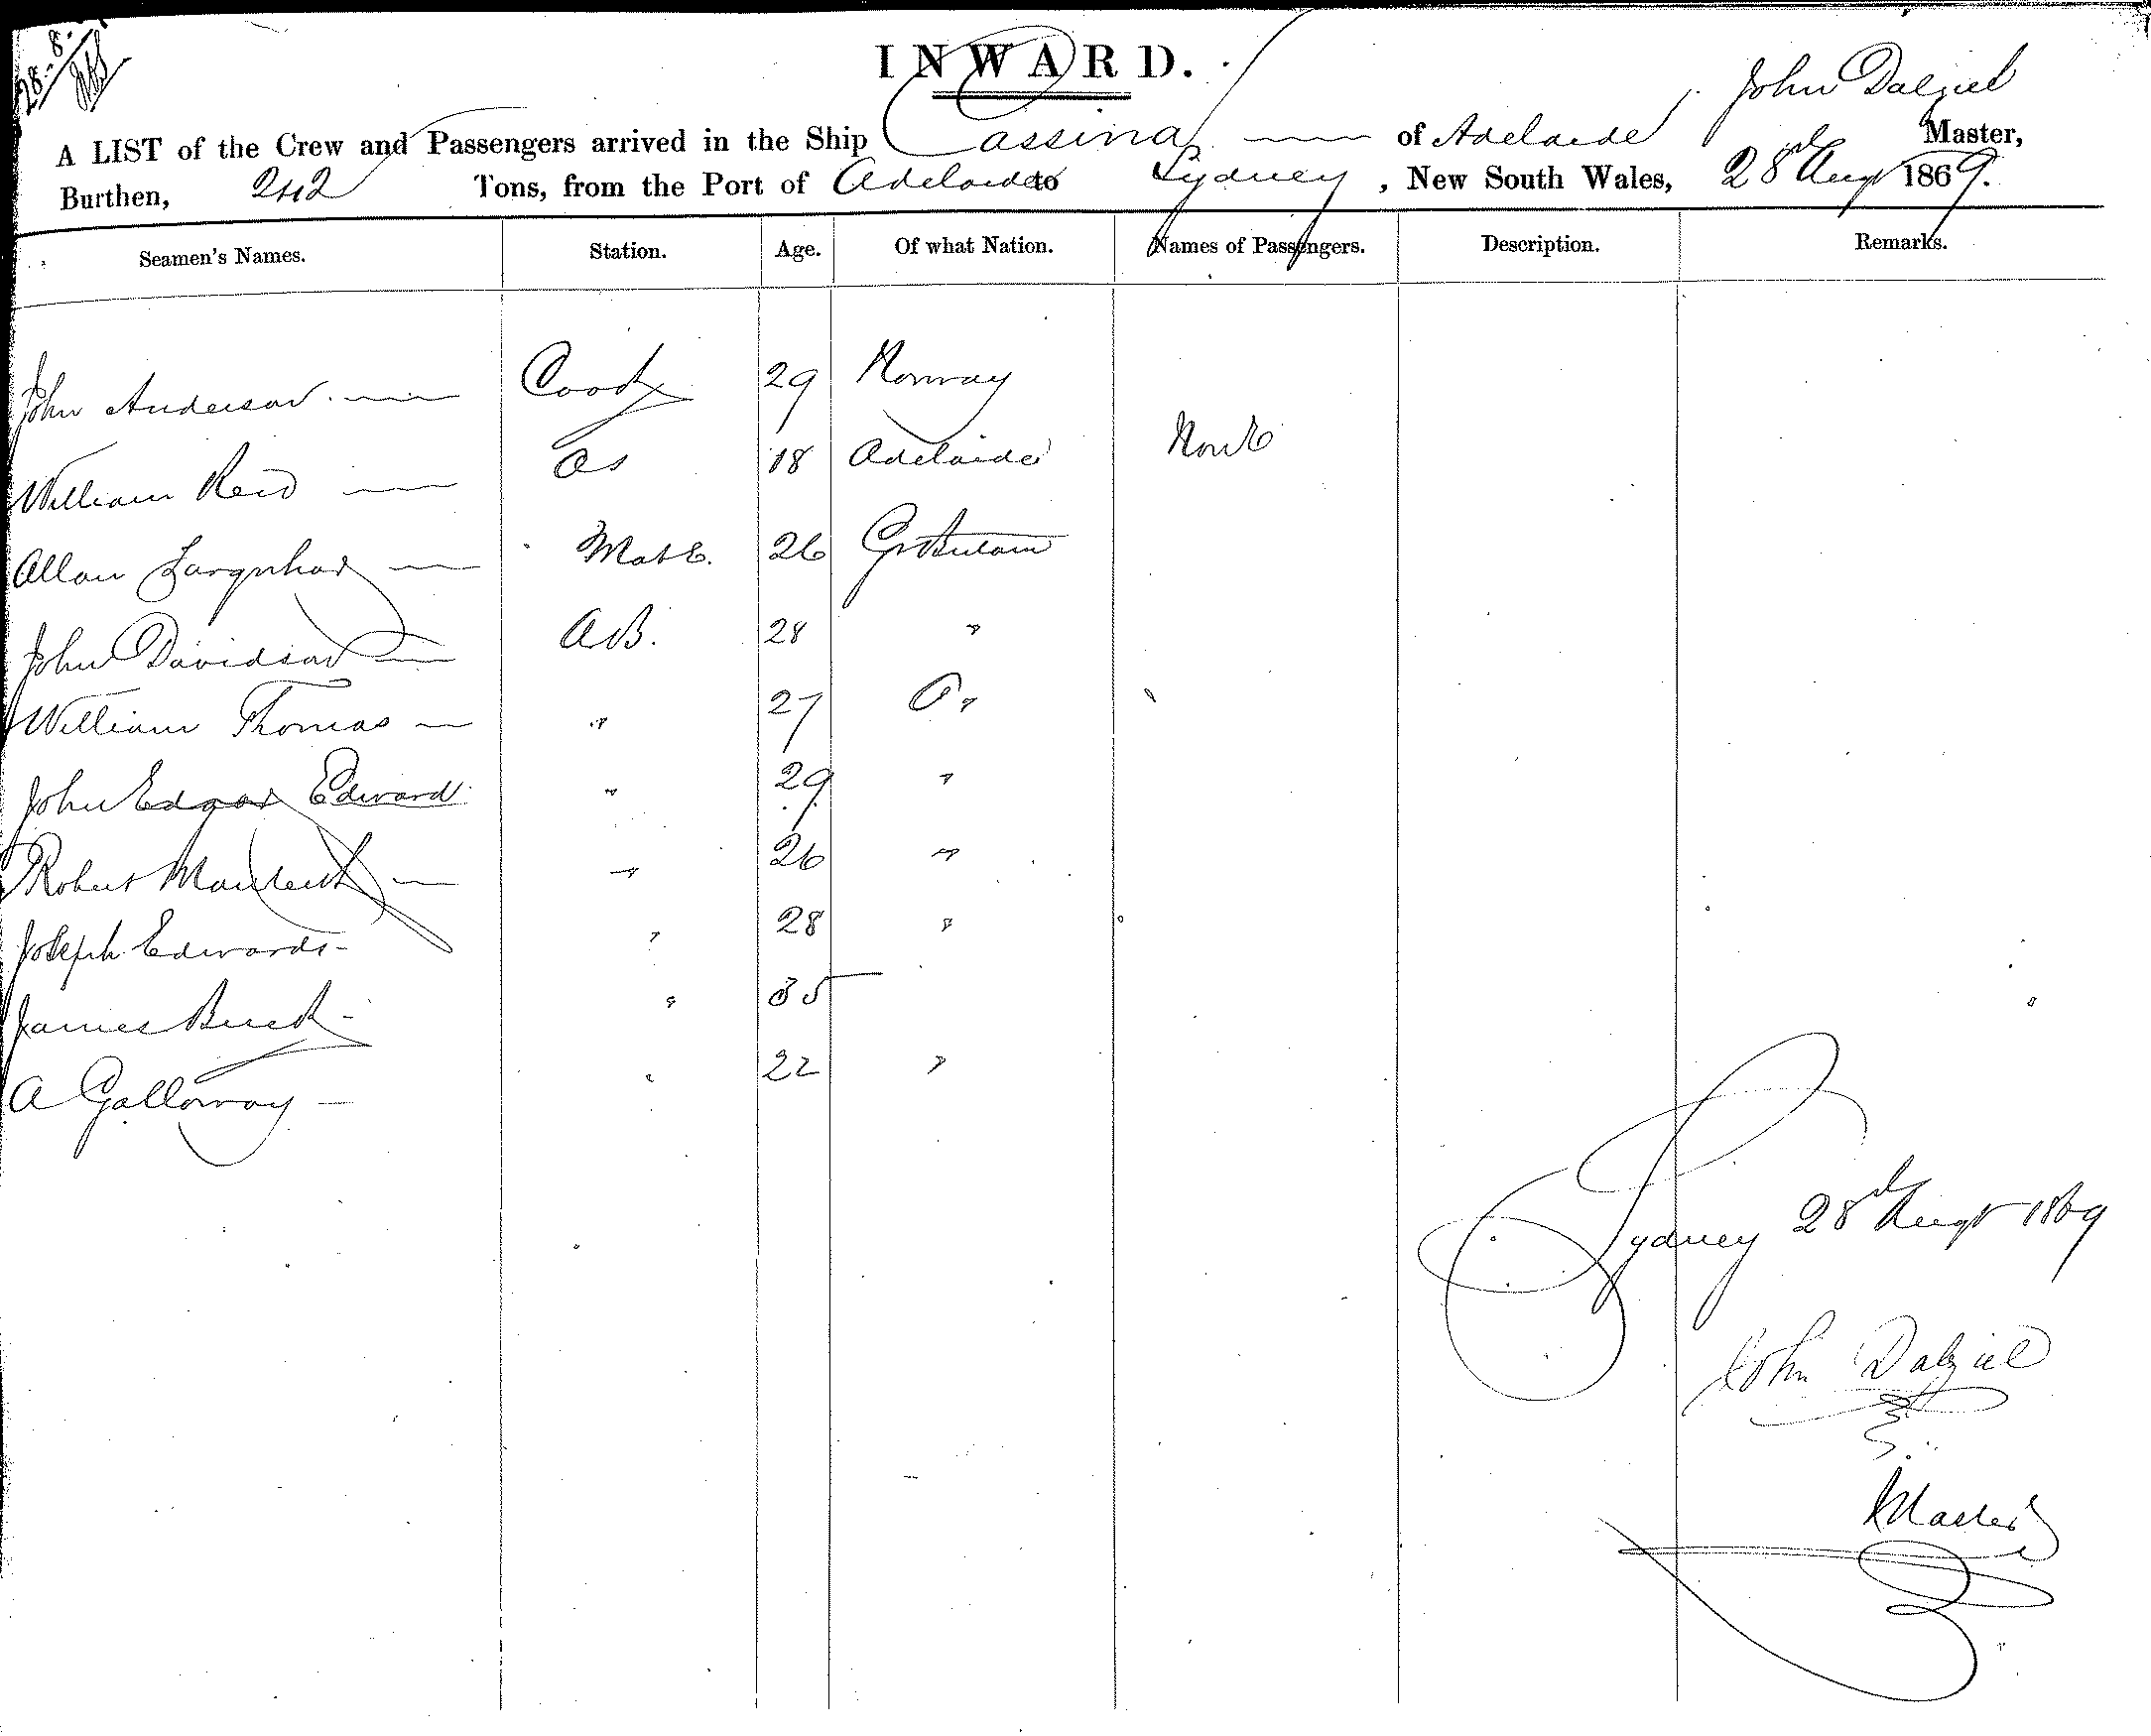 28.8.
INWARD.
John Dalziel
A LIST of the Crew and Passengers arrived in the Ship Cassina of Adelaide Master,
Burthen, 242 Tons, from the Port of Adelaide to Sydney, New South Wales, 28th Augt 1869.
Seamen's Names. Station. Age. Of what Nation. Names of Passengers. Description. Remarks.
John Anderson Cook 29 Norway
William Reid OS 18 Adelaide None
Allan Farquhar Mate. 26 Gt Britain
John Davidson AB. 28 "
William Thomas " 27 "
John Edgar Edward " 29 "
Robert " 26 "
Joseph Edwards " 28 "
James " 35
A Galloway " 22 "
Sydney 28th Augt 1869
John Dalziel
Master